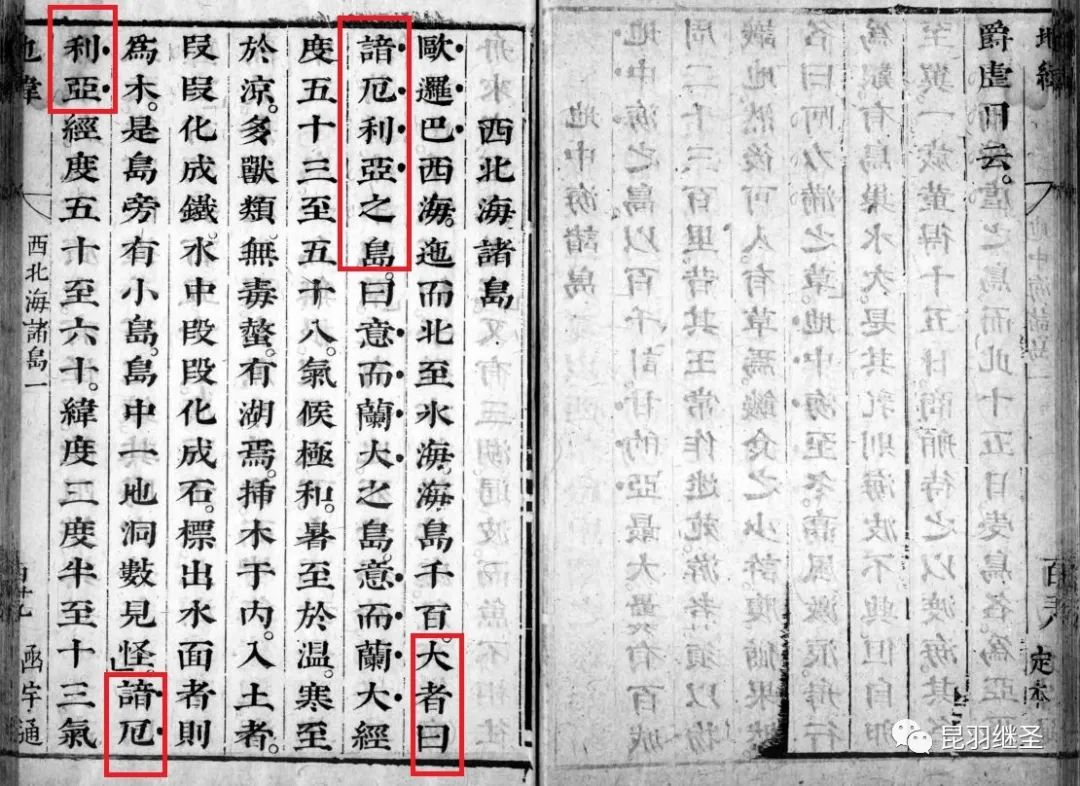 地緯
定本
爵虛日云。
西北海諸島
歐邏巴西海。迤而北至氷海。海島千百。大者曰
諳厄利亞之島。曰意而蘭大之島。意而蘭大經
度五十三至五十八。氣候極和。暑至於溫。寒至
於凉。多獸類。無毒螫。有湖焉。插木于內。入土者。
段段化成鐵。水中段段化成石。標出水面者則
為木。是島旁有小島。島中一地洞。數見怪。諳厄
利亞經度五十至六十。緯度三度半至十三氣
地緯
西北海諸島一
函宇通
昆羽继圣